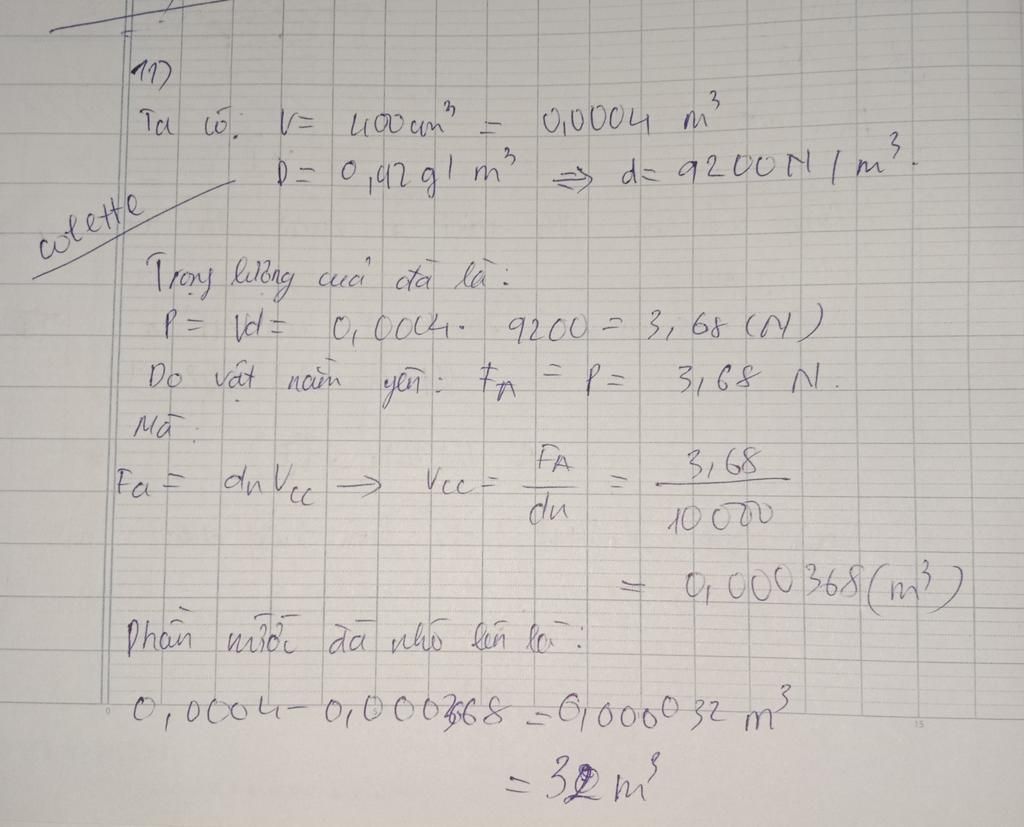 11)
Ta có: V = 400cm³ = 0,0004 m³
D = 0,92g/m³ ⇒ d = 9200N/m³.
colette
Trọng lượng của đá là:
P = Vd = 0,0004. 9200 = 3,68 (N)
Do vật nằm yên: FA = P = 3,68 N.
Mà:
Fa = dn Vcc → Vcc = FA/dn = 3,68/10000
= 0,000368 (m³)
Phần nước đá nhô lên là:
0,0004 - 0,000368 = 0,000032 m³
= 32 m³